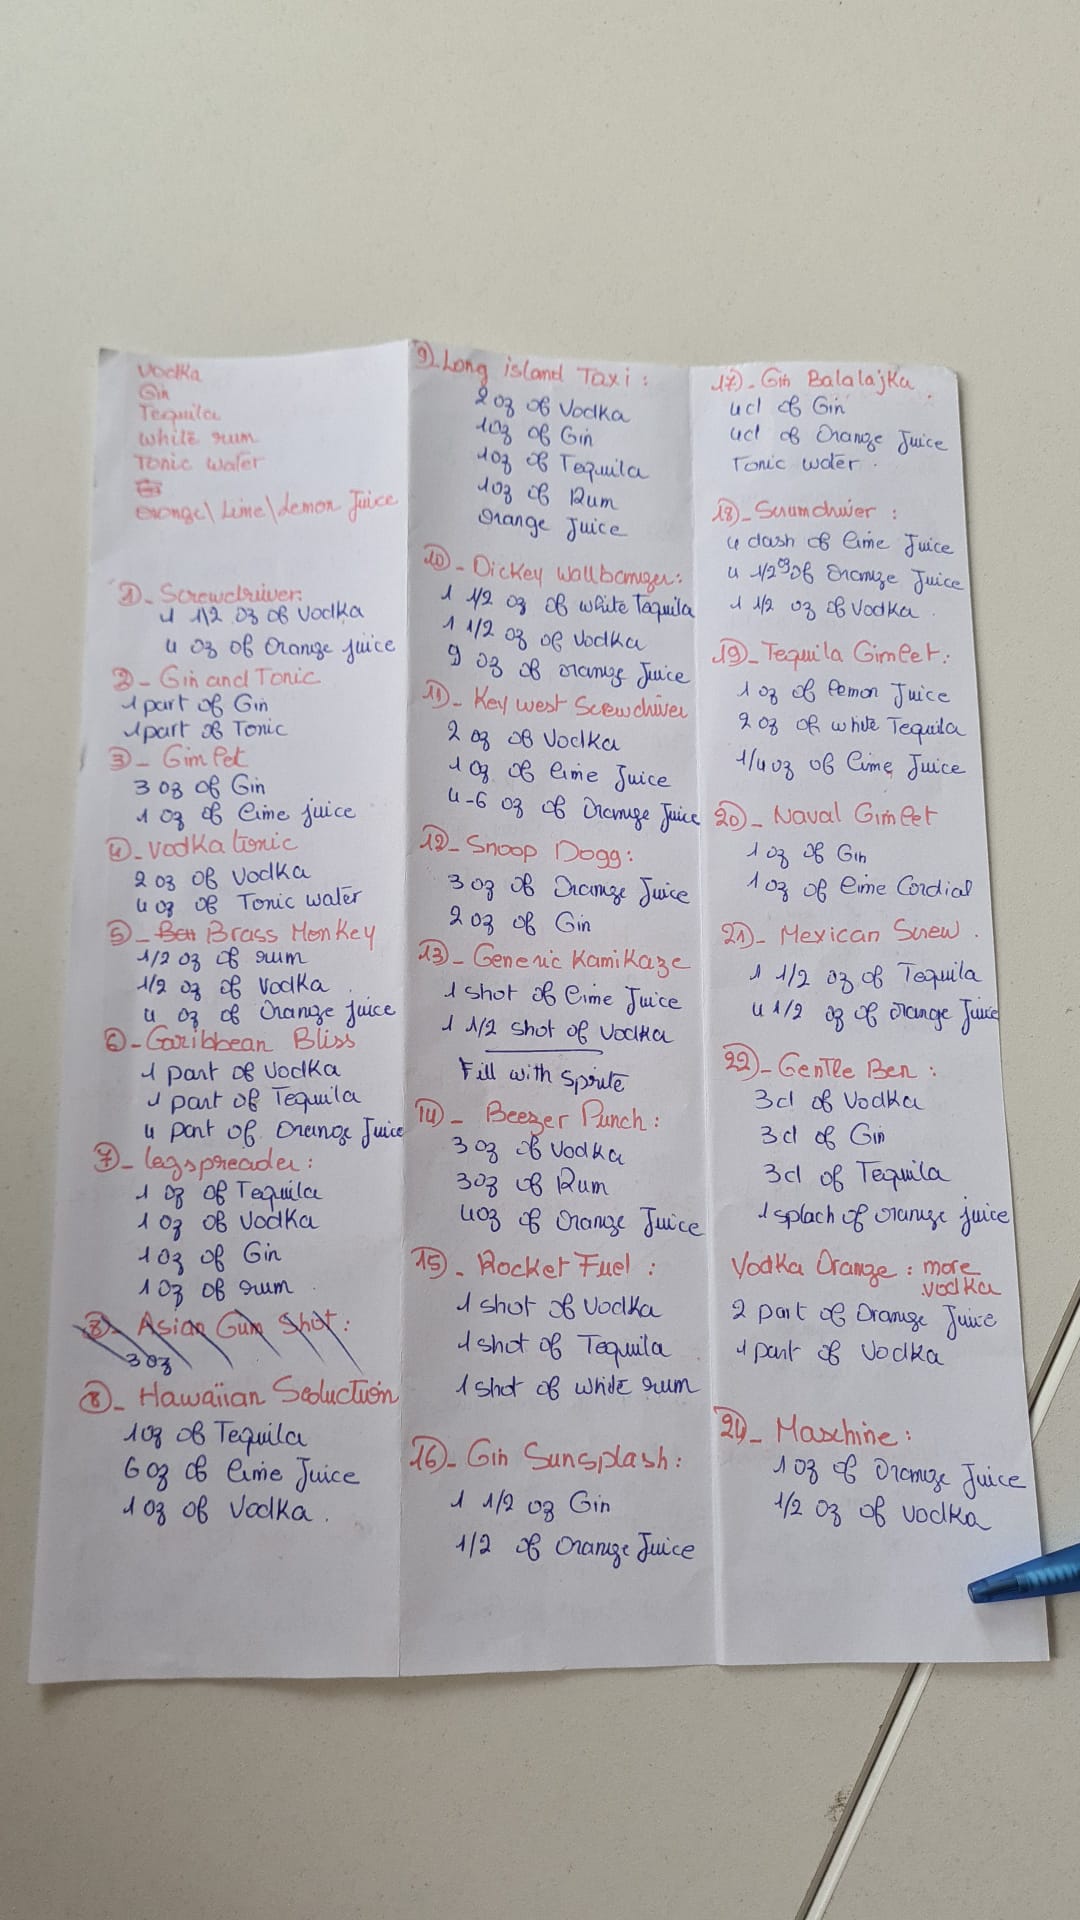 Vodka
Gin
Tequila
White rum
Tonic water
Orange\ Lime\Lemon Juice
1)_ Screwdriver:
1 1\2 oz of Vodka
4 oz of Orange juice
2)_ Gin and Tonic
1 part of Gin
1 part of Tonic
3)_ Gimlet
3 oz of Gin
1 oz of lime juice
4)_ Vodka tonic
2 oz of Vodka
4 oz of Tonic water
5)_ Brass Monkey
1/2 oz of rum
1/2 oz of Vodka
4 oz of Orange juice
6)_ Caribbean Bliss
1 part of Vodka
1 part of Tequila
4 part of Orange Juice
7)_ legspreader:
1 oz of Tequila
1 oz of Vodka
1 oz of Gin
1 oz of rum
8)_ Asian Gum Shot:
3 oz
8)_ Hawaiian Seduction
1oz of Tequila
6 oz of lime Juice
1 oz of Vodka.
9)_Long island Taxi:
2 oz of Vodka
1oz of Gin
1oz of Tequila
1oz of Rum
Orange Juice
10)_ Dickey Wallbanger:
1 1/2 oz of white Tequila
1 1/2 oz of Vodka
9 oz of orange Juice
11)_ Key west Screwdriver
2 oz of Vodka
1 oz of lime Juice
4-6 oz of Orange Juice
12)_ Snoop Dogg:
3 oz of Orange Juice
2 oz of Gin
13)_ Generic Kamikaze
1 shot of lime Juice
1 1/2 shot of Vodka
Fill with sprite
14)_ Beezer Punch:
3 oz of Vodka
3oz of Rum
4oz of Orange Juice
15)_ Rocket Fuel:
1 shot of Vodka
1 shot of Tequila
1 shot of white rum
16)_ Gin Sunsplash:
1 1/2 oz Gin
1/2 of Orange Juice
17)_ Gin Balalajka
4cl of Gin
4cl of Orange Juice
Tonic water.
18)_ Scumdriver:
4 dash of lime Juice
4 1/2 oz of Orange Juice
1 1/2 oz of Vodka.
19)_ Tequila Gimlet:
1 oz of lemon Juice
2 oz of white Tequila
1/4 oz of lime Juice
20)_ Naval Gimlet
1 oz of Gin
1 oz of lime Cordial
21)_ Mexican Screw.
1 1/2 oz of Tequila
4 1/2 oz of orange Juice
22)_ Gentle Ben:
3cl of Vodka
3cl of Gin
3cl of Tequila
1 splach of orange juice
Vodka Orange: more vodka
2 part of Orange Juice
1 part of Vodka
24)_ Maschine:
1 oz of Orange Juice
1/2 oz of vodka